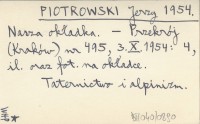 PIOTROWSKI Jerzy 1954.
Nasza okładka. – Przekrój
(Kraków) nr 495, 3.X.1954: 4,
il. oraz fot. na okładce.
Taternictwo i alpinizm.